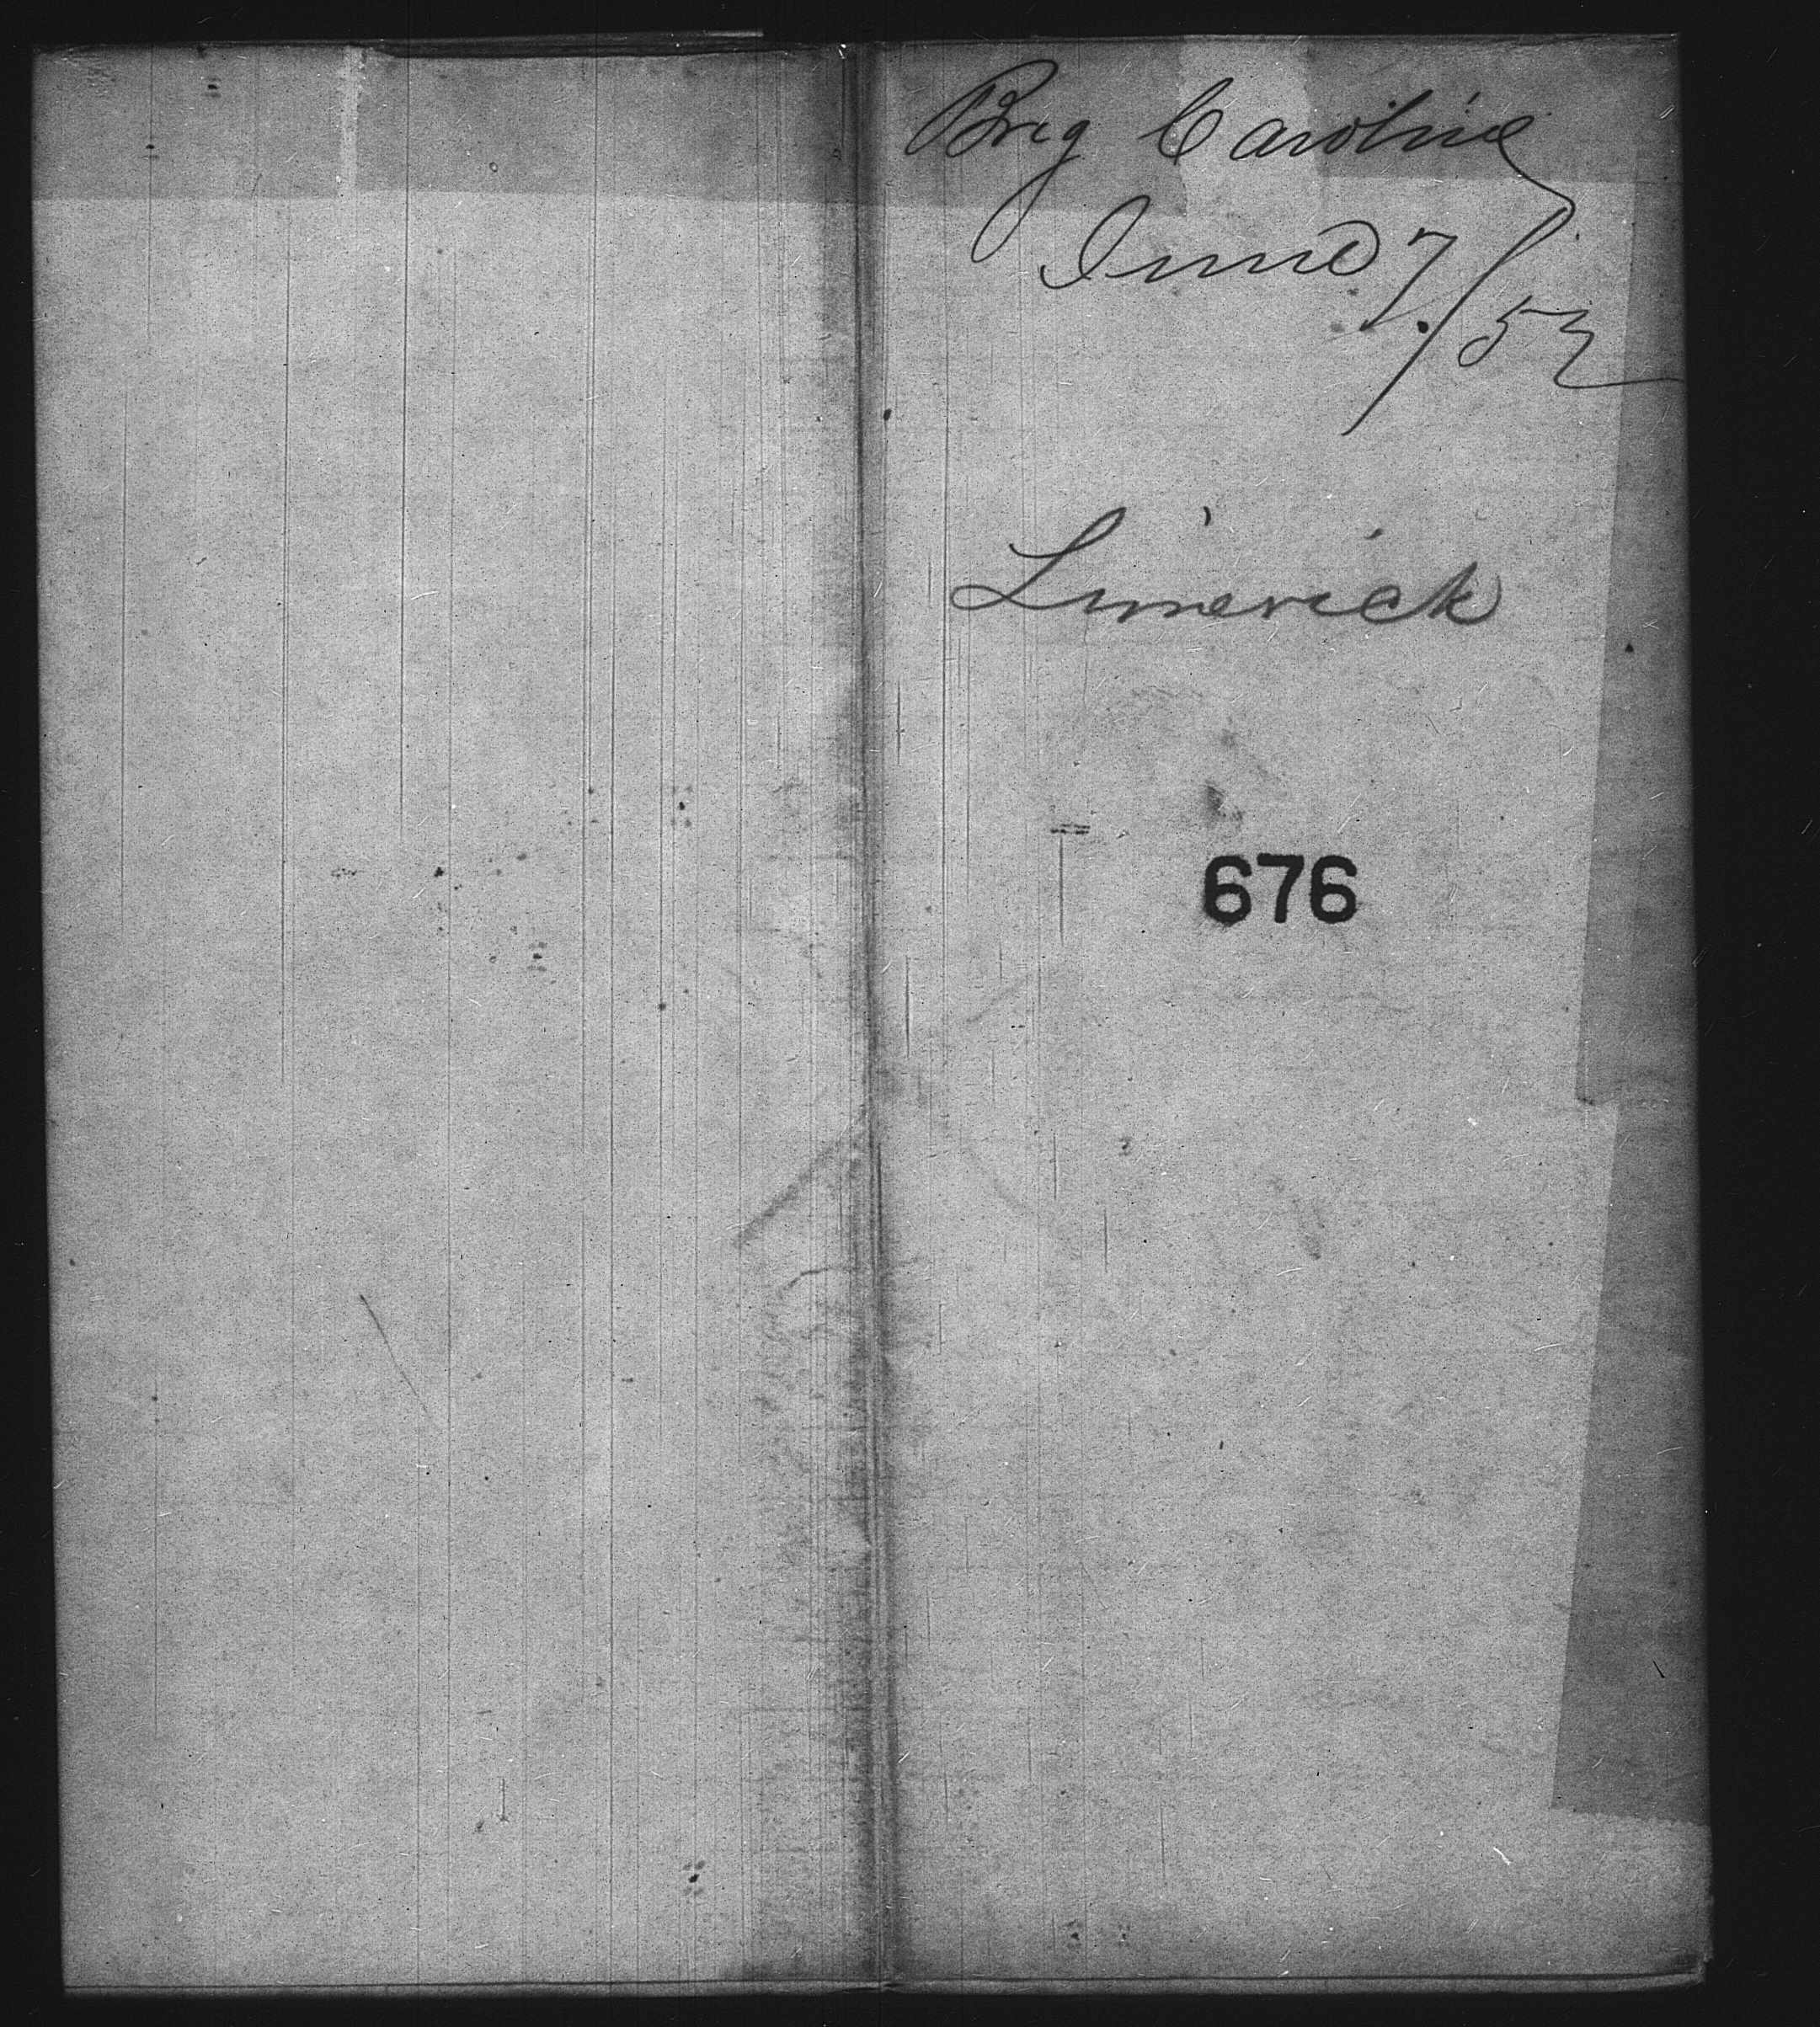 Brig Caroline
June 7/52
Limerick
676